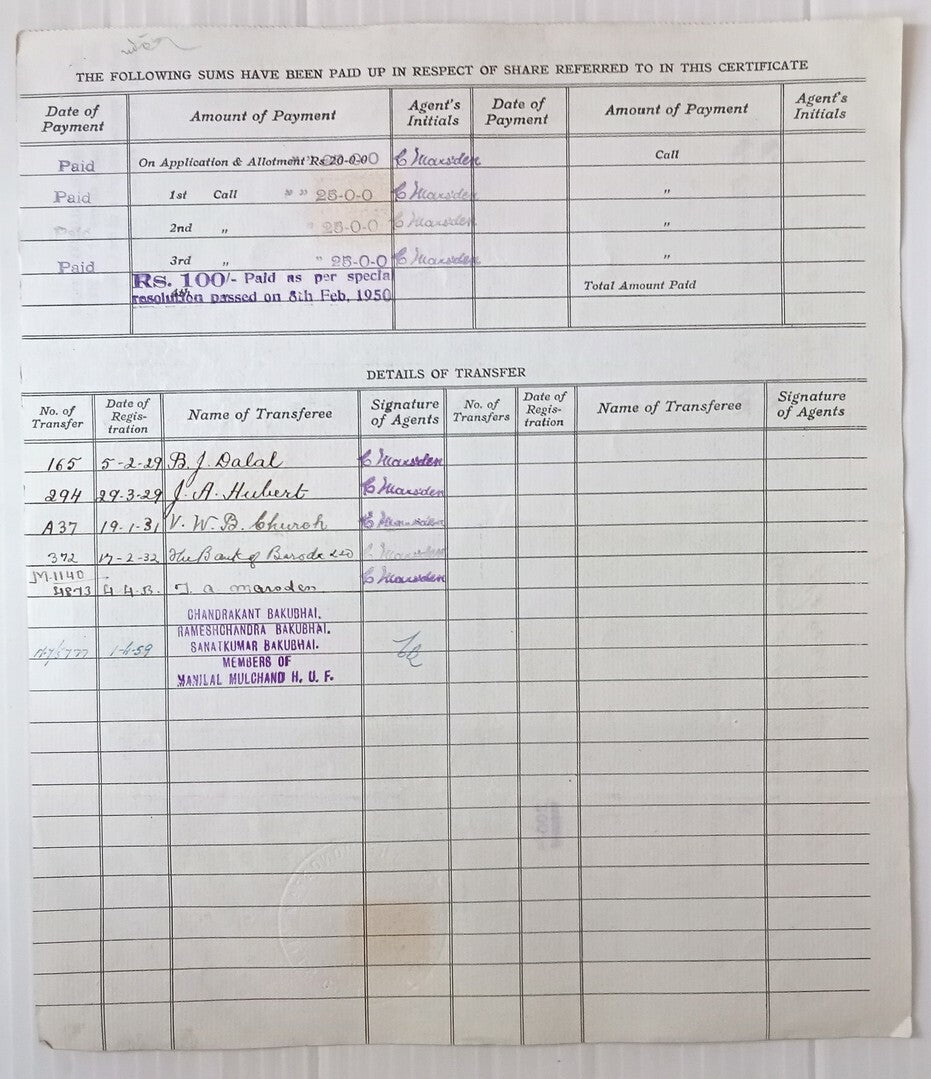 THE FOLLOWING SUMS HAVE BEEN PAID UP IN RESPECT OF SHARE REFERRED TO IN THIS CERTIFICATE
Date of Payment Amount of Payment Agent's Initials Date of Payment Amount of Payment Agent's Initials
Paid On Application & Allotment Rs 20-0-0 C Marsden Call
Paid 1st Call " " 25-0-0 C Marsden "
2nd " " 25-0-0 C Marsden "
Paid 3rd " " 25-0-0 C Marsden "
Rs. 100/- Paid as per specia Total Amount Paid
resolution passed on 8th Feb, 1950
DETAILS OF TRANSFER
No. of Transfer Date of Regis-tration Name of Transferee Signature of Agents No. of Transfers Date of Regis-tration Name of Transferee Signature of Agents
165 5-2-29 B. J. Dalal C Marsden
294 29-3-29 J. A. Hubert C Marsden
A37 19-1-31 V. W. B. Church C Marsden
372 17-2-32 The Bank of Baroda Ltd C Marsden
M.1140
4873 T. A. Marsden C Marsden
CHANDRAKANT BAKUBHAI.
RAMESHCHANDRA BAKUBHAI.
SANATKUMAR BAKUBHAI.
MEMBERS OF
MANILAL MULCHAND H. U. F.